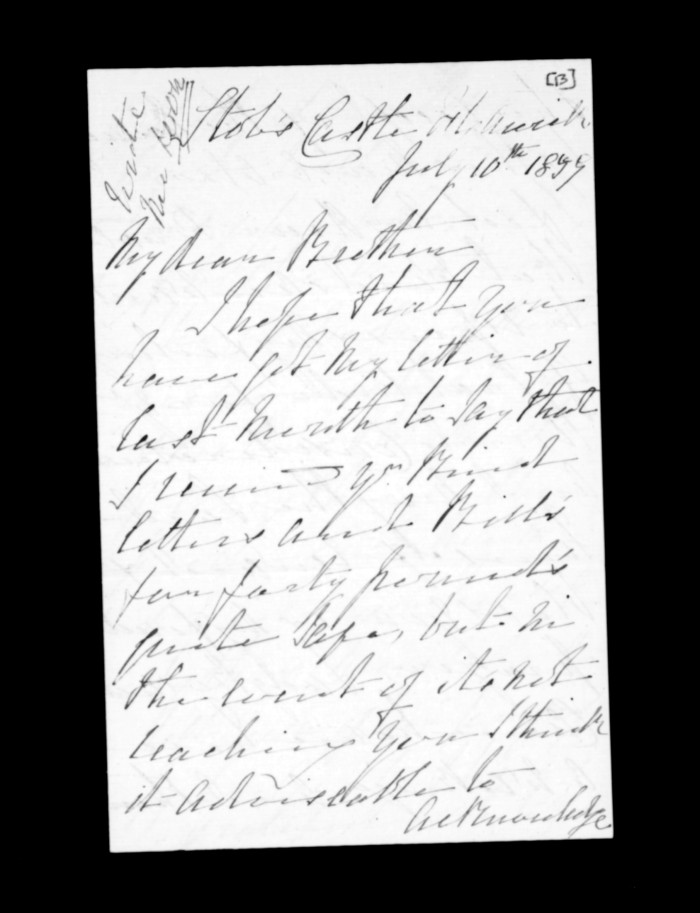 [B]
Write me soon
Stobs Castle Hawick
July 10th 1899
My dear Brother
I hope that you
have got my letter of
last month to say that
I received yr kind
letters and Bills
for forty pounds
quite safe, but in
the event of its not
reaching you I think
it adviseable to
acknowledge